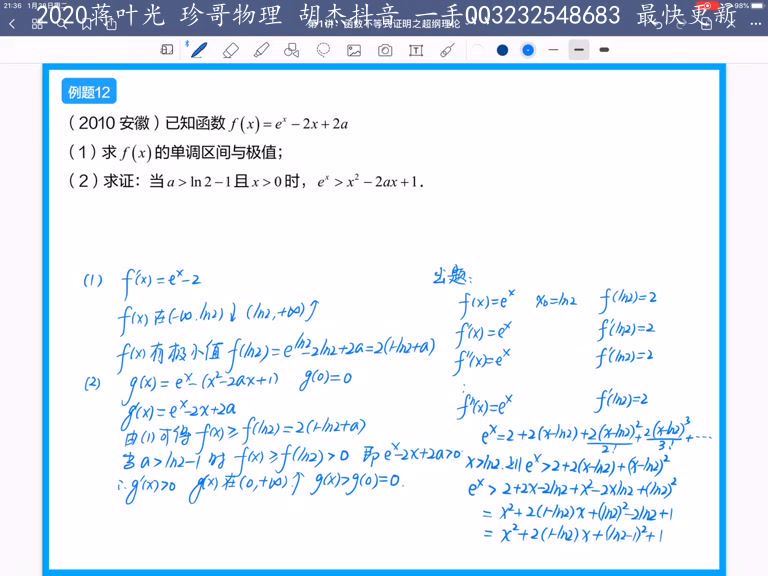 21:36 1月28日周二
98%
2020蒋叶光 珍哥物理 胡杰抖音 一手QQ3232548683 最快更新
第1讲：函数不等式证明之超纲理论
例题12
（2010 安徽）已知函数 f(x)=eˣ−2x+2a
（1）求 f(x)的单调区间与极值；
（2）求证：当 a>ln2−1且 x>0时，eˣ>x²−2ax+1．
(1) f'(x)=eˣ−2
f(x)在(-∞,ln2)↓ (ln2,+∞)↑
f(x)有极小值 f(ln2)=e^{ln2}−2ln2+2a=2(1-ln2+a)
(2) g(x)=eˣ−(x²−2ax+1) g(0)=0
g'(x)=eˣ−2x+2a
由(1)可得 f(x)≥f(ln2)=2(1-ln2+a)
当a>ln2−1 时 f(x)≥f(ln2)>0 即 eˣ−2x+2a>0
∴g'(x)>0 g(x)在(0,+∞)↑ g(x)>g(0)=0.
出题：
f(x)=eˣ x₀=ln2 f(ln2)=2
f'(x)=eˣ f'(ln2)=2
f''(x)=eˣ f''(ln2)=2
⋮
fⁿ(x)=eˣ fⁿ(ln2)=2
eˣ=2+2(x-ln2)+2(x-ln2)²/2!+2(x-ln2)³/3!+⋯
x>ln2 eˣ>2+2(x-ln2)+(x-ln2)²
eˣ>2+2x−2ln2+x²−2xln2+(ln2)²
=x²+2(1-ln2)x+(ln2)²−2ln2+1+1
=x²+2(1-ln2)x+(ln2-1)²+1